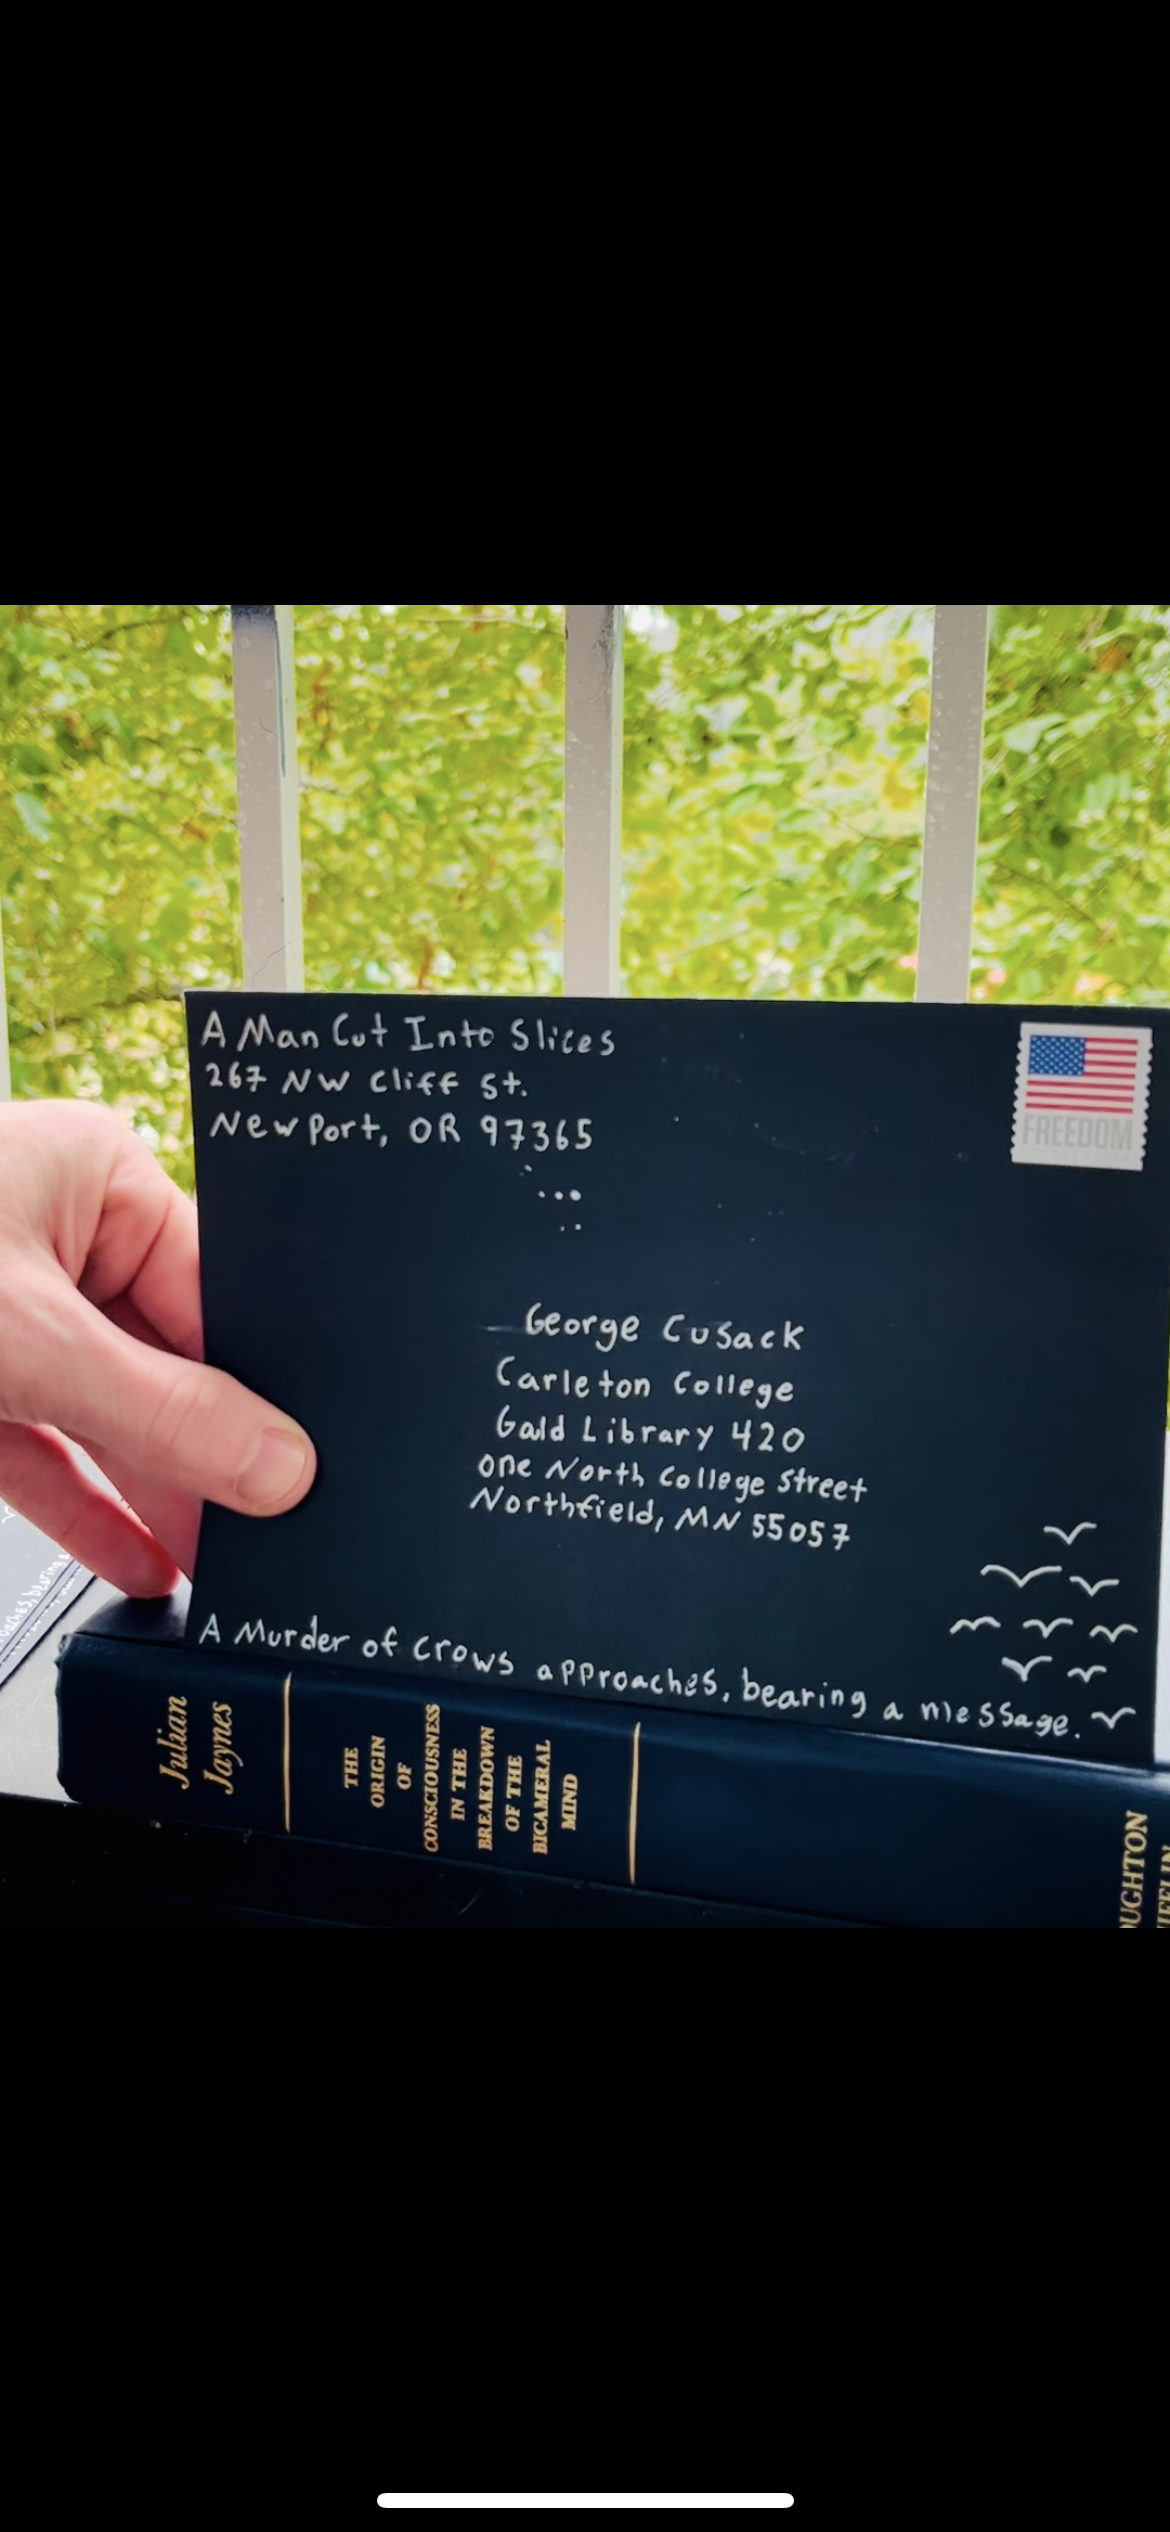 A Man Cut Into Slices
267 NW Cliff St.
Newport, OR 97365
FREEDOM
George Cusack
Carleton College
Gould Library 420
One North College Street
Northfield, MN 55057
A Murder of Crows approaches, bearing a message.
Julian
Jaynes
THE
ORIGIN
OF
CONSCIOUSNESS
IN THE
BREAKDOWN
OF THE
BICAMERAL
MIND